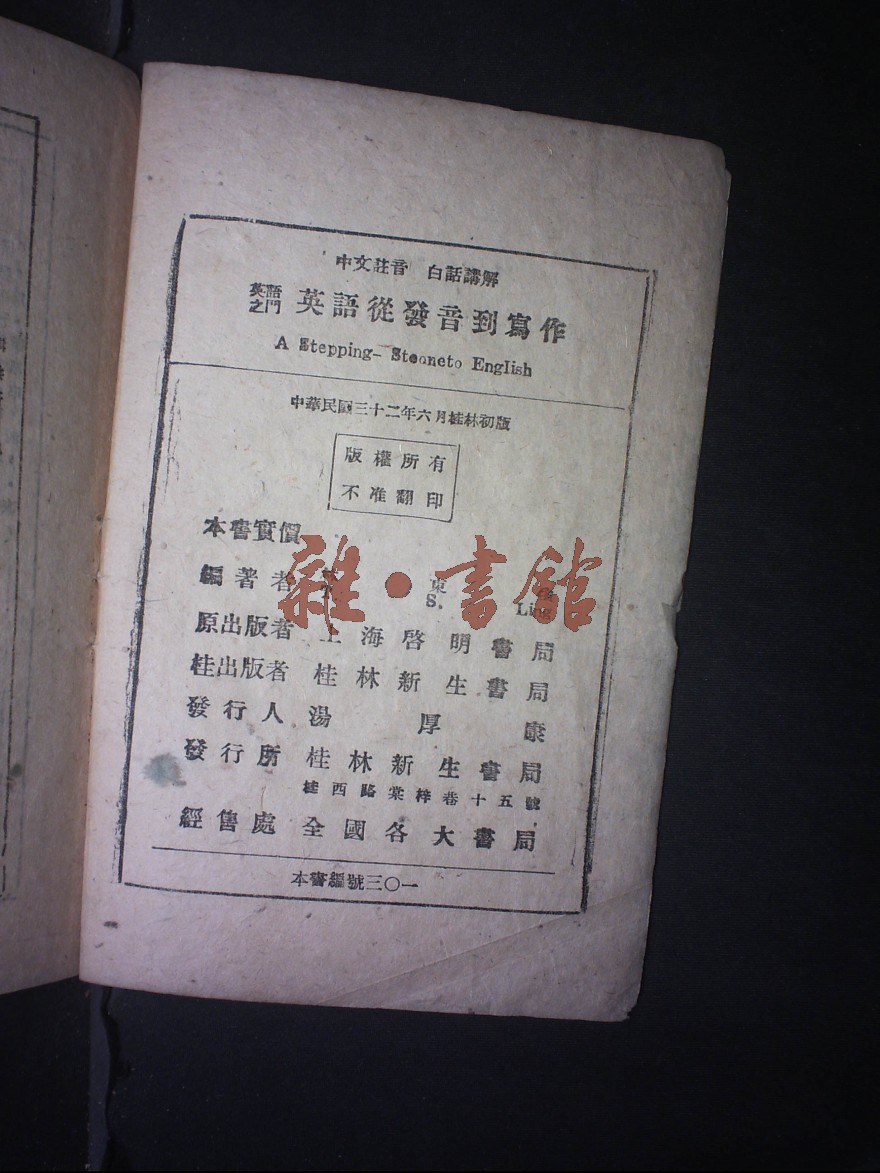 中文註音 白話講解
英語之門 英語從發音到寫作
A Stepping- Stooneto EngIish
中華民國三十二年六月桂林初版
版權所有
不准翻印
本書實價
編著者 東
S. Ling
原出版者 上海啓明書局
桂出版者 桂林新生書局
發行人 湯厚康
發行所 桂林新生書局
桂西路棠梓巷十五號
經售處 全國各大書局
本書編號三〇一
雜·書館